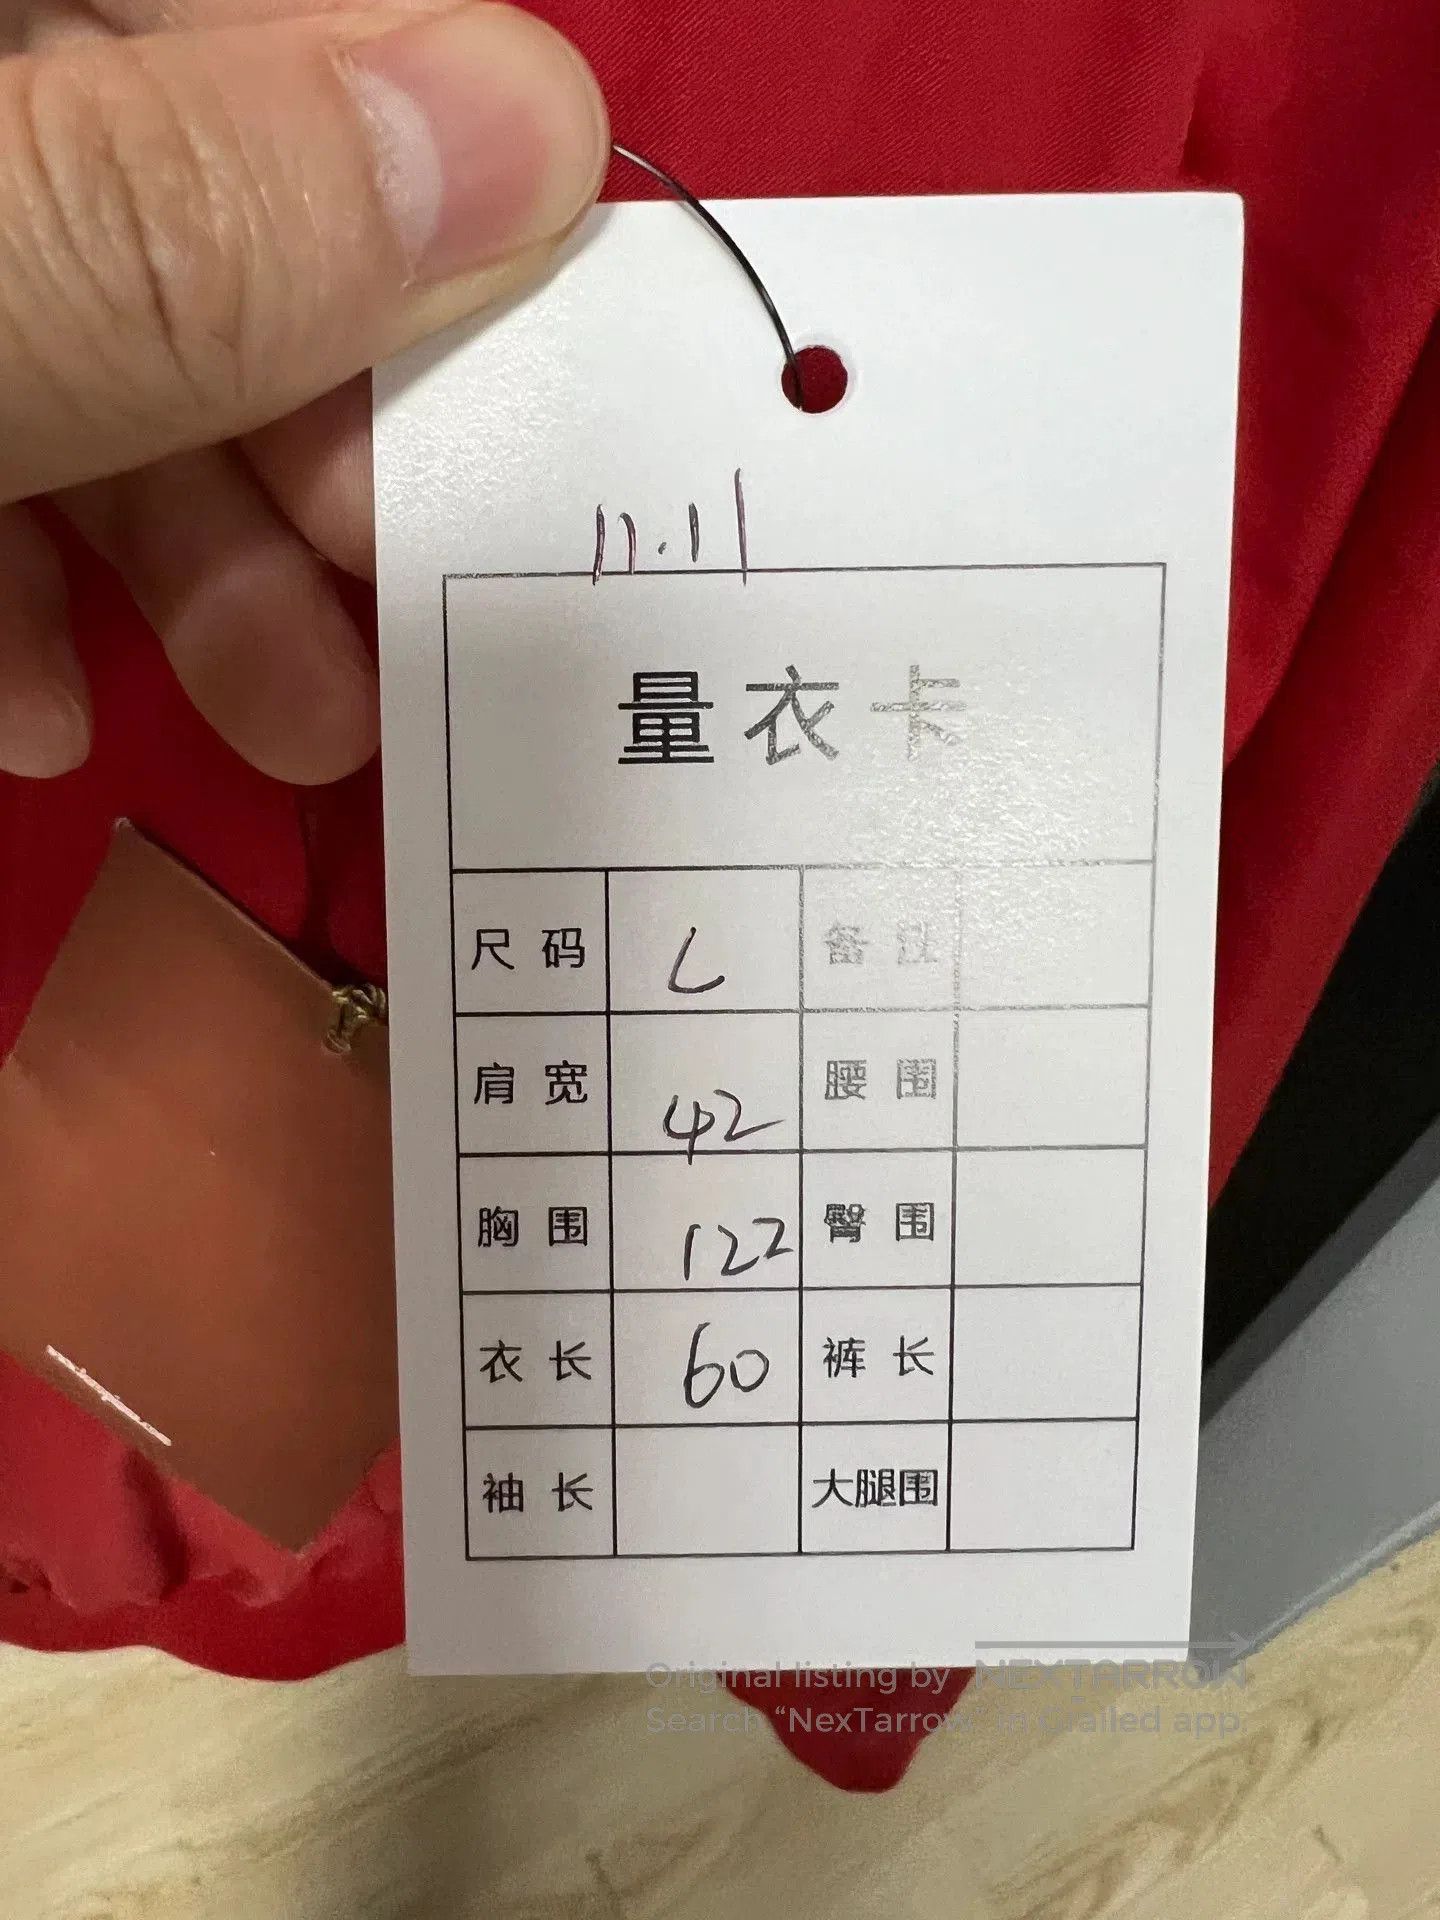 11.11
量衣卡
尺码 L 备注
肩宽 42 腰围
胸围 122 臀围
衣长 60 裤长
袖长 大腿围
Original listing by NEXTARROW
Search “NexTarrow” in Grailed app.